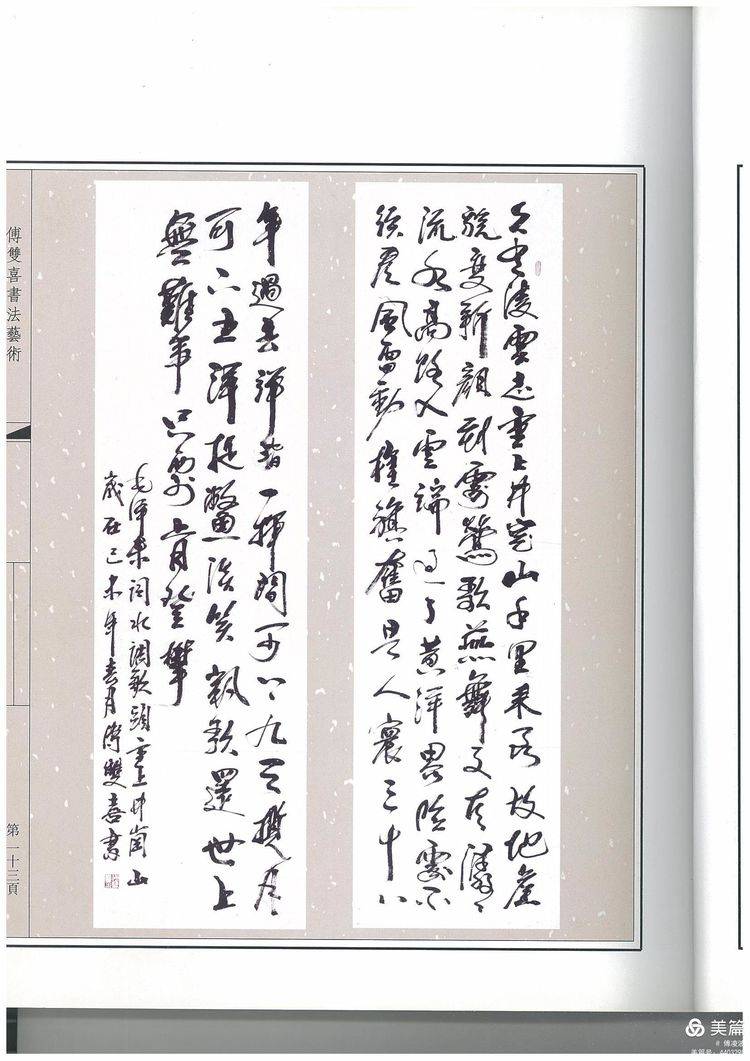 久有凌雲志重上井崗山千里來尋故地舊
貌變新顏到處鶯歌燕舞更有潺〻
流水高路入雲端過了黃洋界險處不
須看風雷動旌旗奮是人寰三十八
年過去彈指一揮間可上九天攬月
可下五洋捉鱉談笑凱歌還世上
無難事只要肯登攀
毛澤東詞水調歌頭重上井崗山
歲在己未年春月傅雙喜書
傅雙喜書法藝術
第一十三頁
美篇
# 傅凌
美篇号: 440329